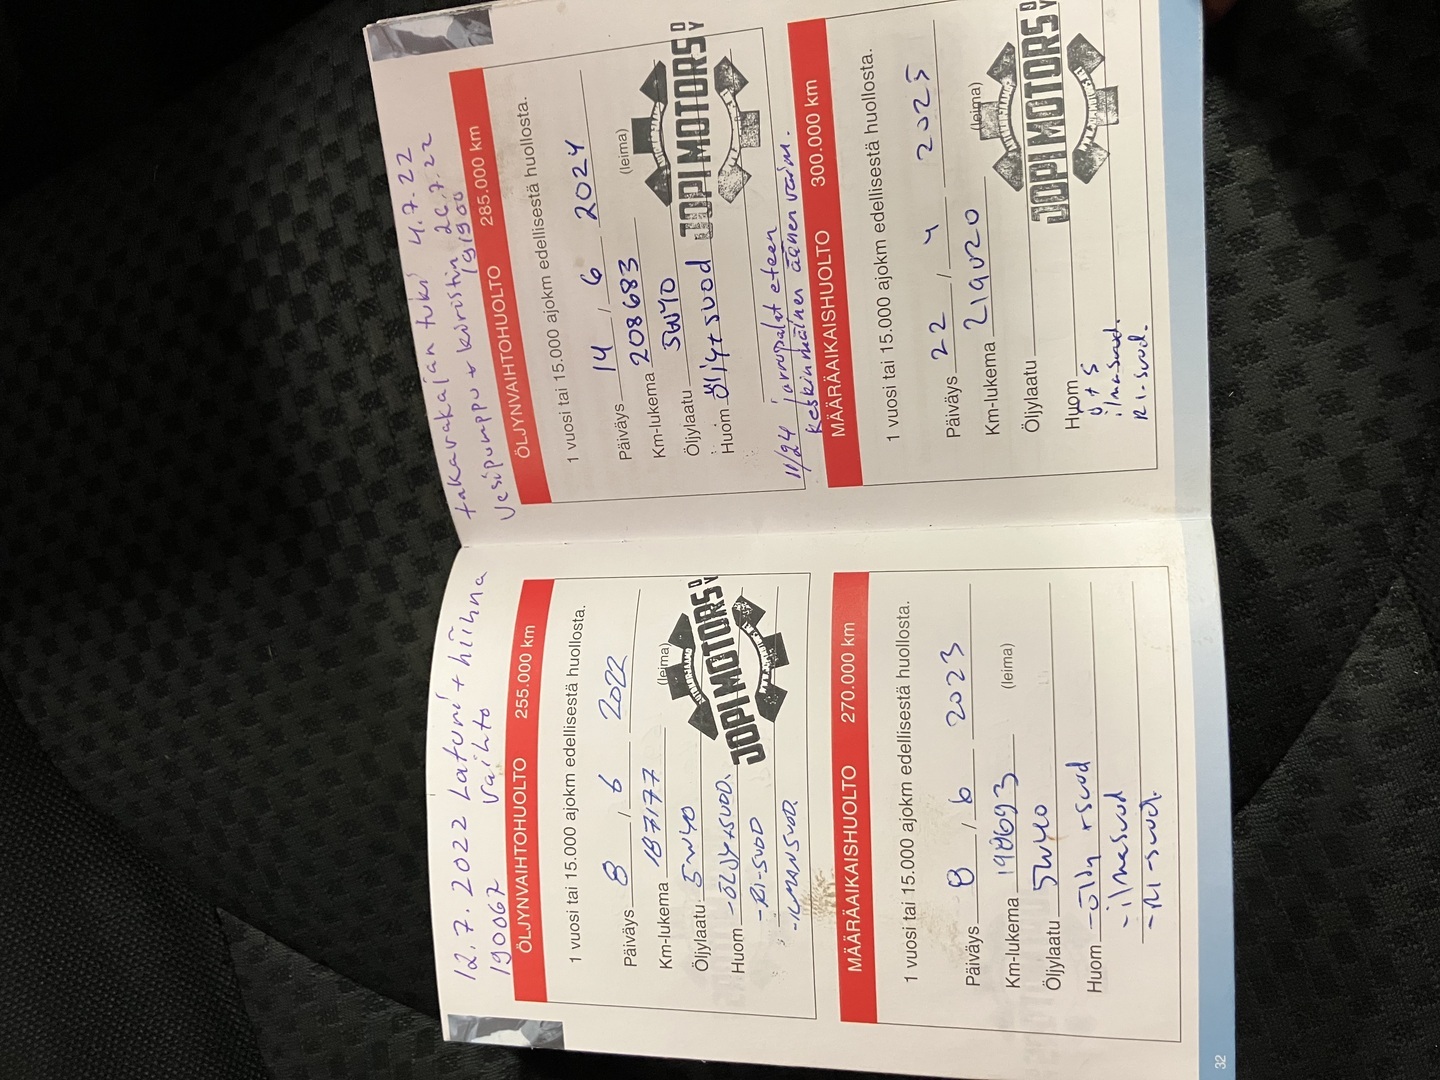 12.7.2022 Laturi + hihna
190062 vaihto
ÖLJYNVAIHTOHUOLTO 255.000 km
1 vuosi tai 15.000 ajokm edellisestä huollosta.
Päiväys 8 / 6 2022
Km-lukema 187177 (leima)
Öljylaatu 5W40
Huom -ÖLJY+SUOD.
-RI-SUOD
-ILMANSUOD.
JOPI MOTORS OY
MÄÄRÄAIKAISHUOLTO 270.000 km
1 vuosi tai 15.000 ajokm edellisestä huollosta.
Päiväys 8 / 6 2023
Km-lukema 198693 (leima)
Öljylaatu 5W40
Huom -öljy +suod
-ilmasuod
-RI-suod.
32
takavakajan tuki 4.7.22
Vesipumppu + kiristin 20.7.22
191900
ÖLJYNVAIHTOHUOLTO 285.000 km
1 vuosi tai 15.000 ajokm edellisestä huollosta.
Päiväys 14 / 6 2024
Km-lukema 208683 (leima)
Öljylaatu 5W40
Huom Öljy+suod
JOPI MOTORS OY
11/24 jarrupalat eteen
keskimmäinen äänen vaim.
MÄÄRÄAIKAISHUOLTO 300.000 km
1 vuosi tai 15.000 ajokm edellisestä huollosta.
Päiväys 22 / 4 2025
Km-lukema (leima)
Öljylaatu
Huom
ö+s
ilmasuod.
RI-suod.
JOPI MOTORS OY